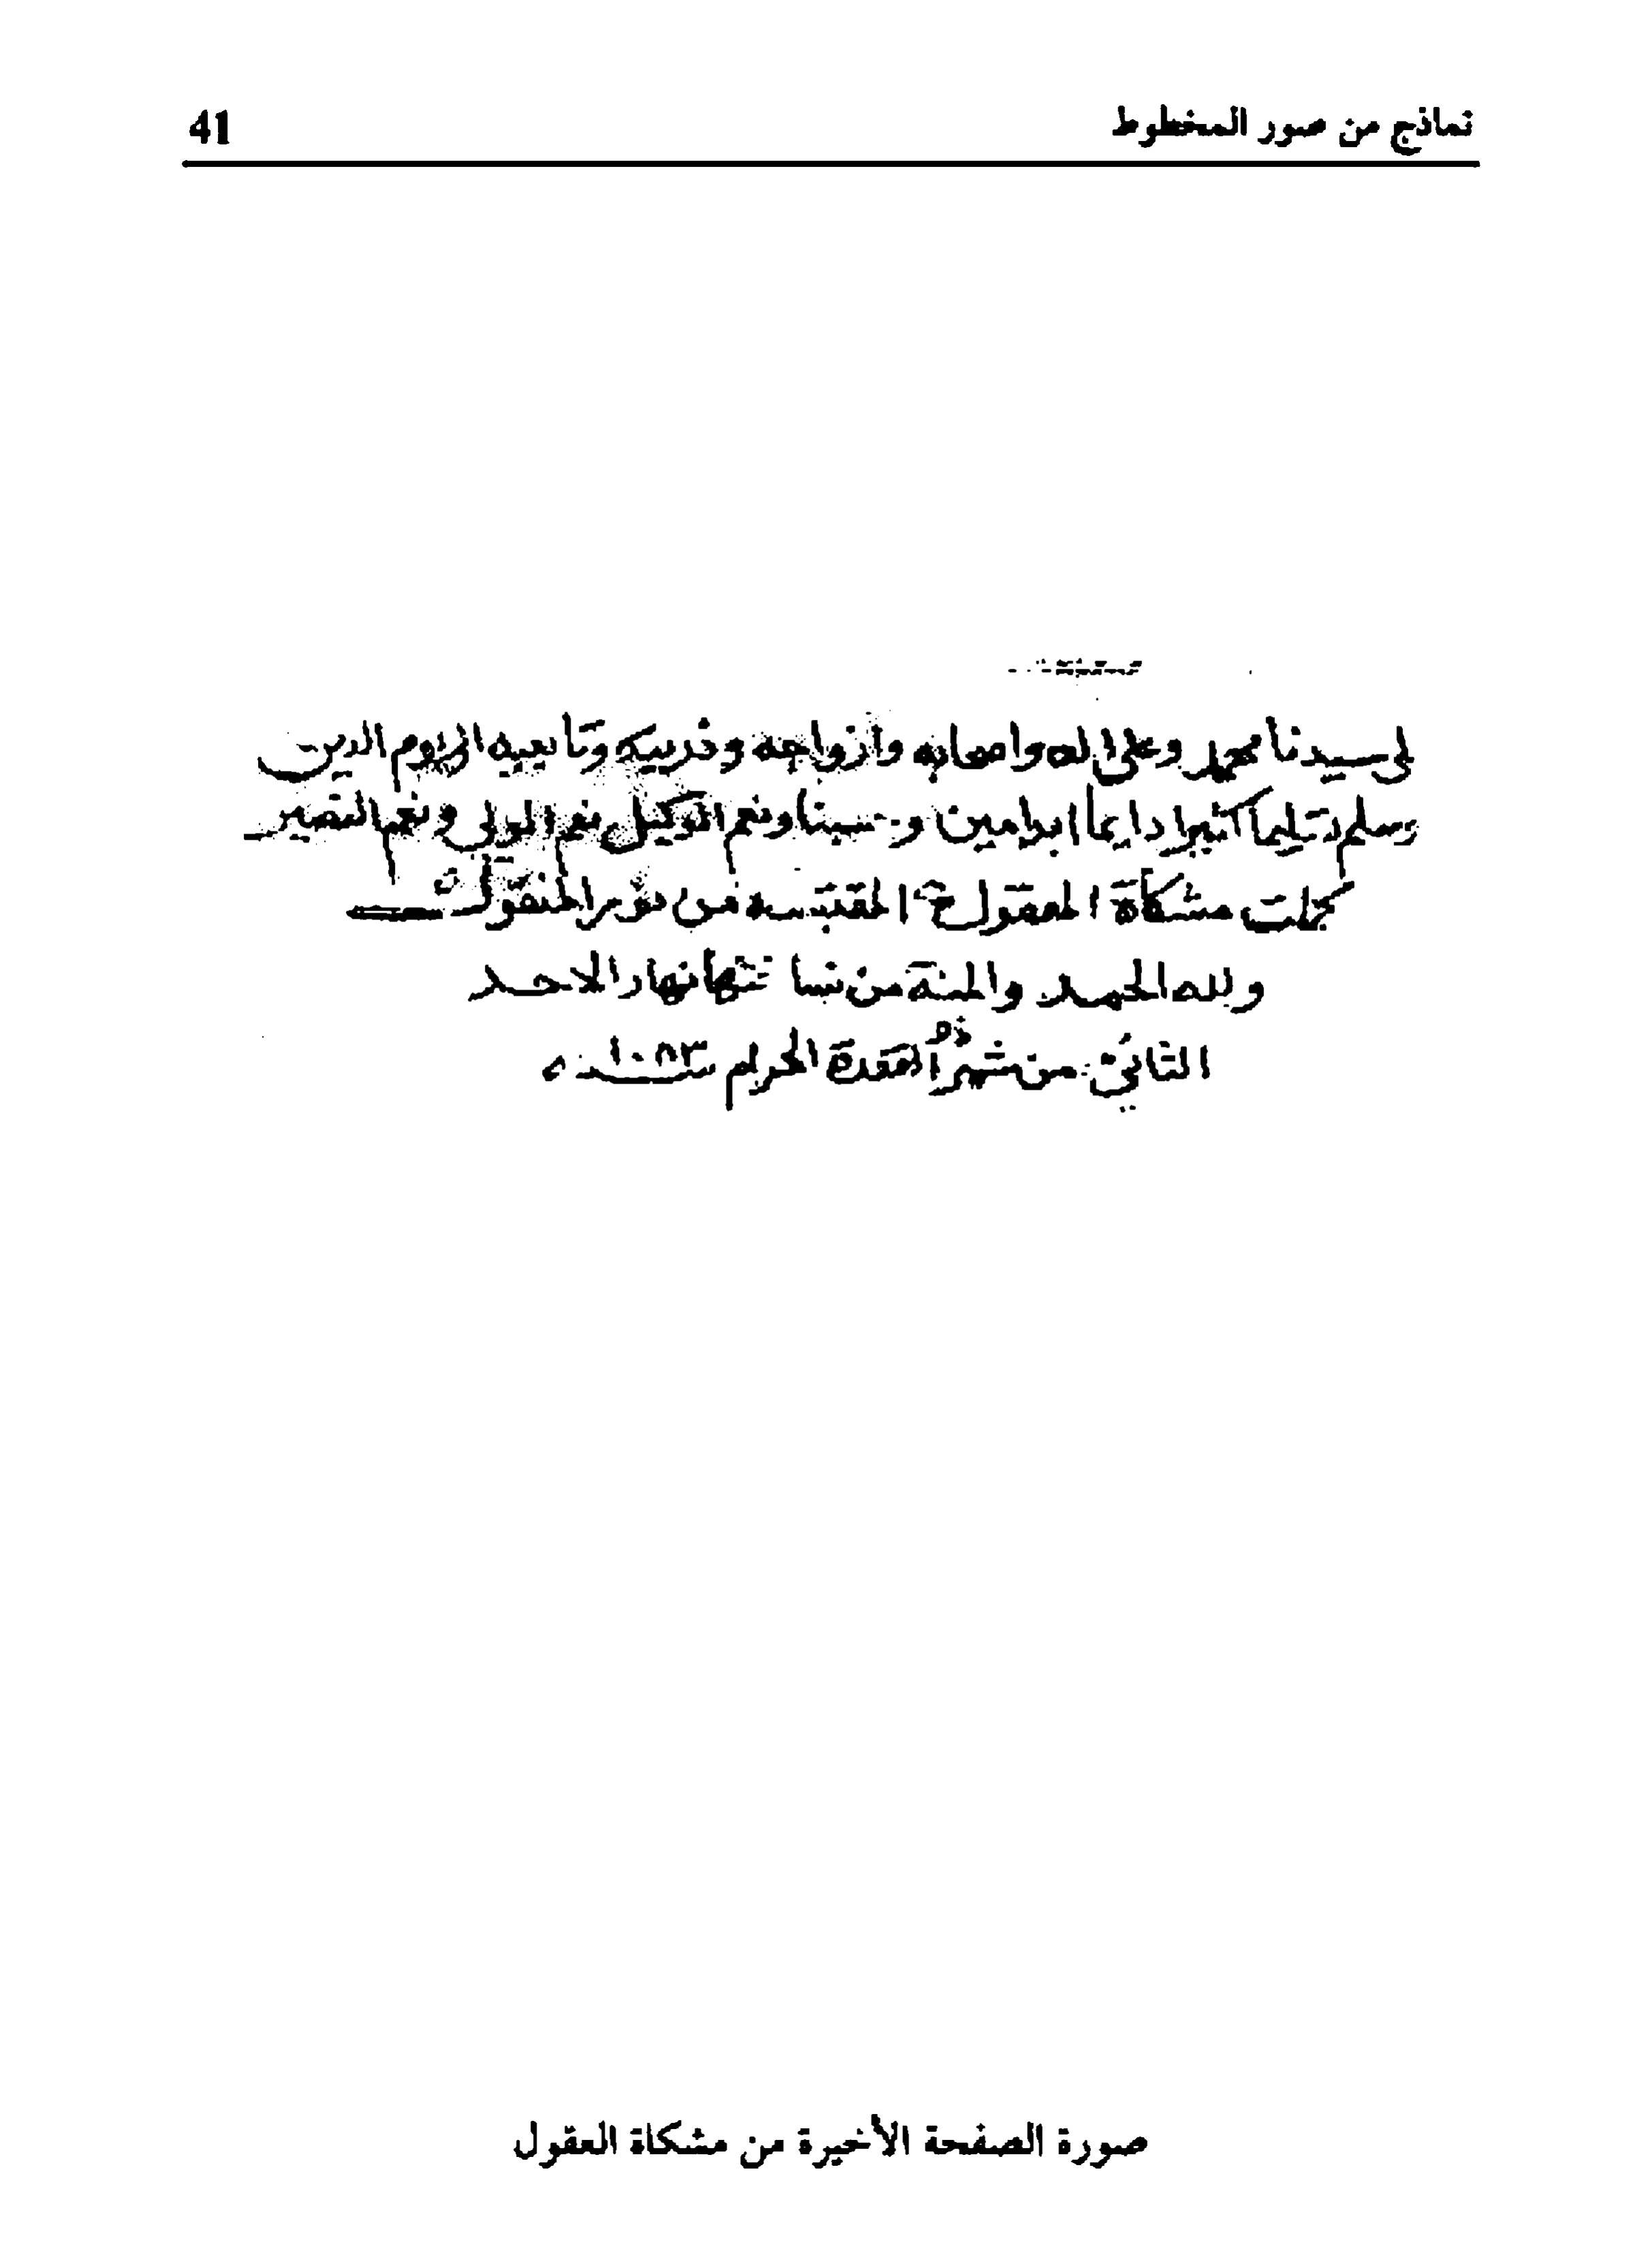 نماذج من صور المخطوط 41
لى سيدنا محمد وعلى اله واصحابه وازواجه وذريته وتابعيه الى يوم الدين
وسلم تسليما كثيرا دايما ابدا امين وحسبنا ونعم الوكيل نعم المولى ونعم النصير
كملت مشكاة العقول المقتبسة من نور المنقول
ولله الحمد والمنة من نساختها نهار الاحد
الثاني من شهر ذه القعدة الحرام سنة
صورة الصفحة الأخيرة من مشكاة العقول